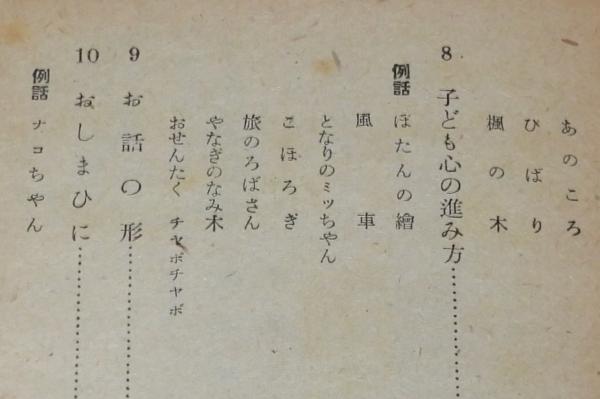 あのころ
ひばり
楓の木
8 子ども心の進み方…………
例話 ぼたんの繪
風車
となりのミッちやん
こほろぎ
旅のろばさん
やなぎのなみ木
おせんたく チヤボチヤボ
9 お話の形…………
10 おしまひに…………
例話 ナコちやん